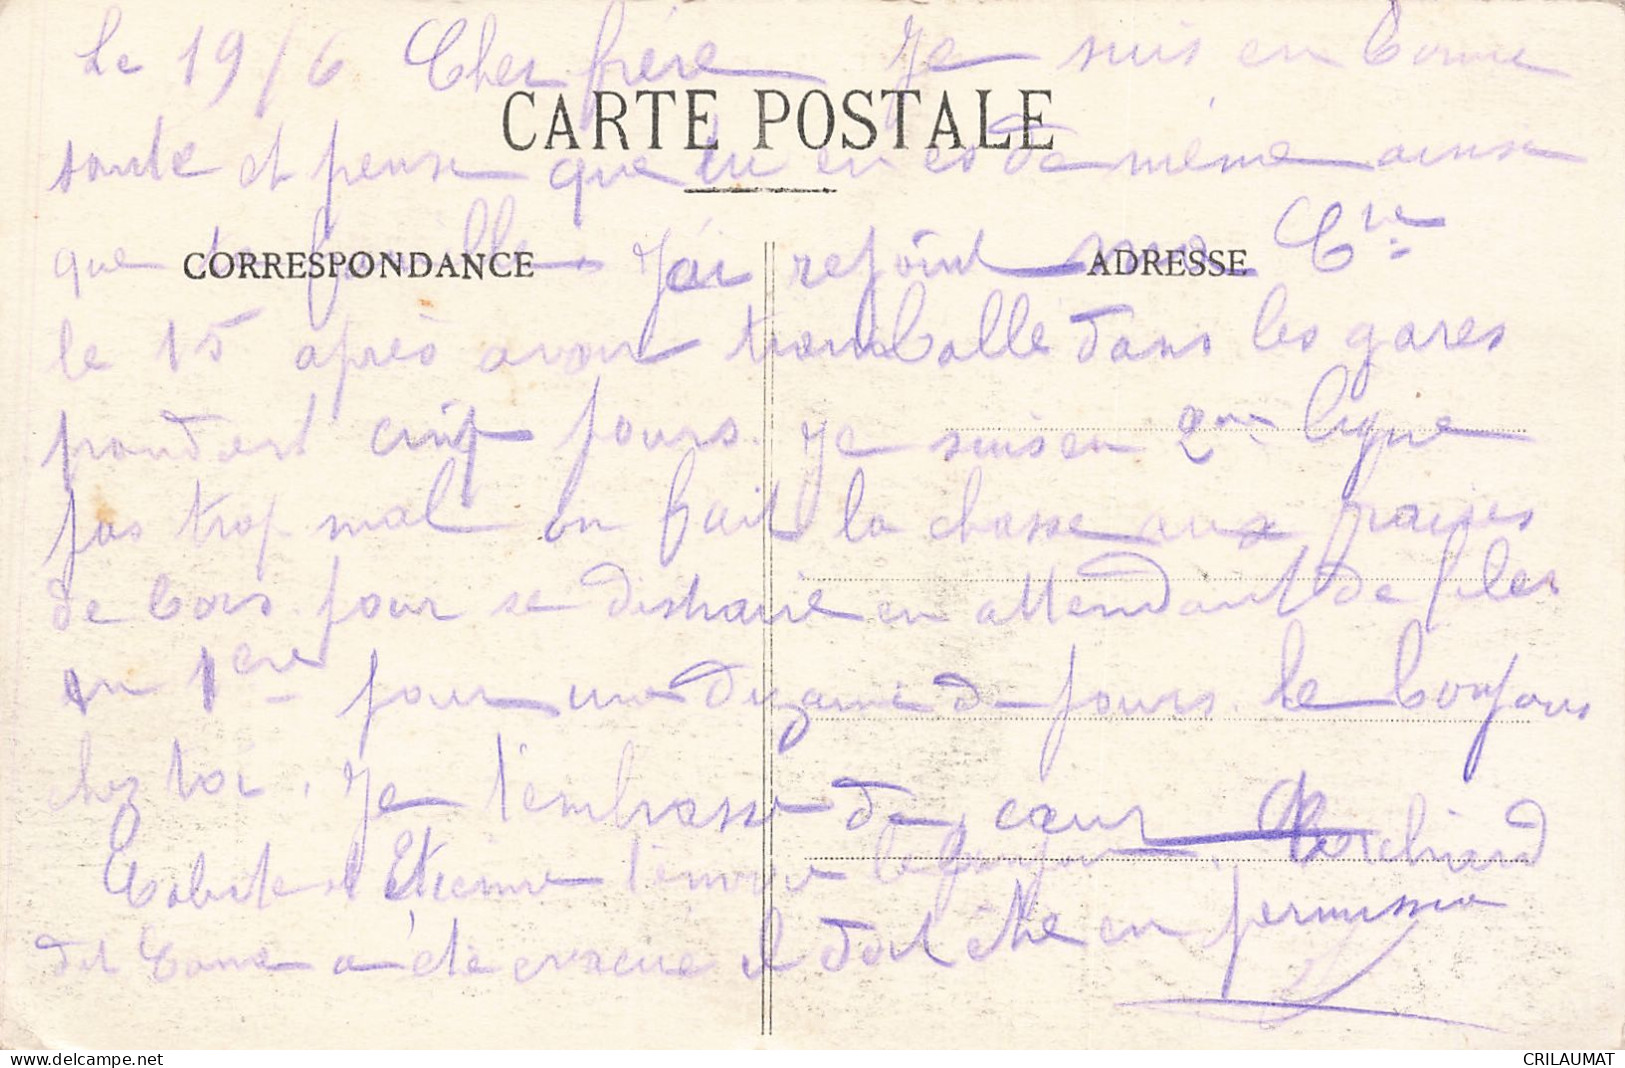 Le 19/6 Cher frère Je suis en bonne
CARTE POSTALE
sante et pense que tu en es de même ainsi
que la famille. J'ai rejoint ma Cie
CORRESPONDANCE
ADRESSE
le 15 après avoir trimballé dans les gares
pendant cinq jours. Je suis en 2me ligne
pas trop mal on fait la chasse aux fraises
de bois pour se distraire en attendant de filer
en 1ere pour une dizaine de jours. Le bonjour
chez toi. Je t'embrasse de cœur
et Etienne t'envoye le bonjour. Richard
dit a été évacué il doit être en permission
CRILAUMAT
delcampe.net